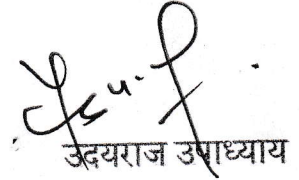 उदयराज उपाध्याय